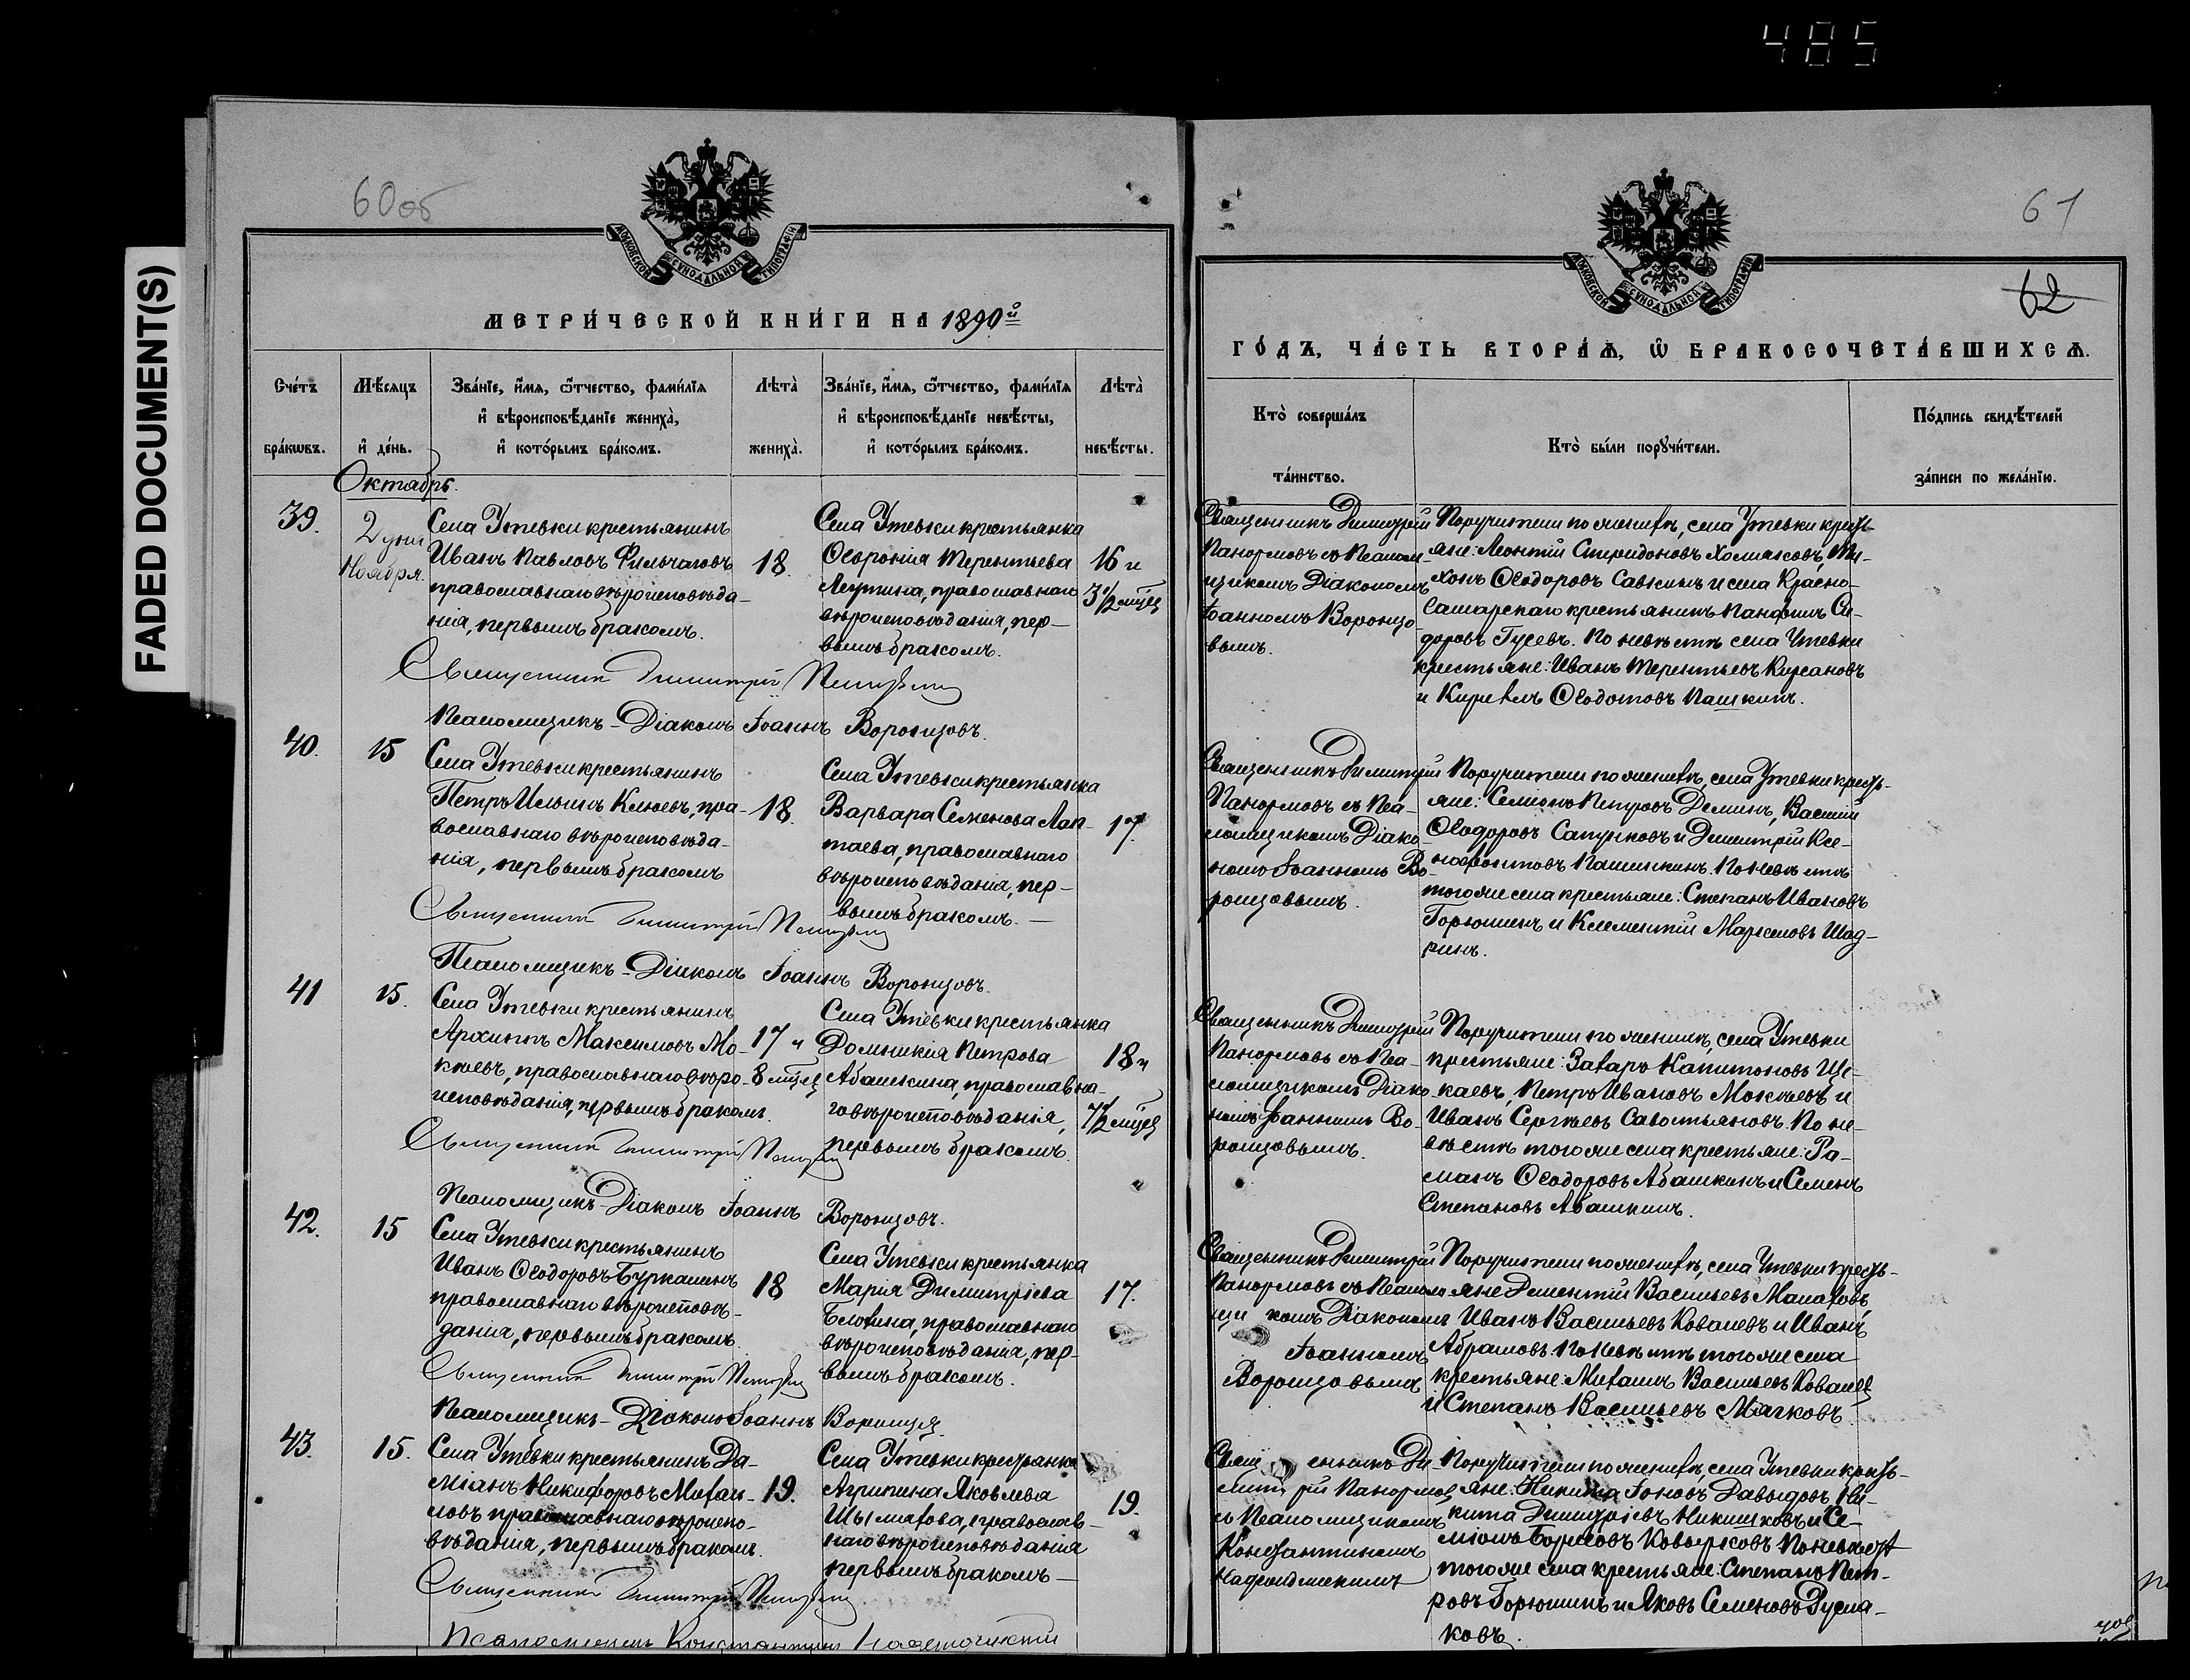 485
FADED DOCUMENT(S)
60об
МОСКОВСКОЙ СѴНОДАЛЬНОЙ ТИПОГРАФІИ
МЕТРИ́ЧЕСКОЙ КНИ́ГИ НА 1890й
Сче́тъ бра́кѡвъ.
Мѣ́сяцъ и҆ де́нь.
Зва́нїе, и҆́мя, ѻ҆́тчество, фами́лїя
и҆ вѣроисповѣ́данїе жениха̀,
и҆ кото́рымъ бра́комъ.
Лѣта̀ жениха̀.
Зва́нїе, и҆́мя, ѻ҆́тчество, фами́лїя
и҆ вѣроисповѣ́данїе невѣ́сты,
и҆ кото́рымъ бра́комъ.
Лѣта̀ невѣ́сты.
Октябрь.
39.
2 дня
Ноября.
Села Утевки крестьянинъ
Иванъ Павловъ
православнаго вѣроисповѣда-
нія, первымъ бракомъ.
18.
Села Утевки крестьянка
Ѳевронія Терентьева
православнаго
вѣроисповѣданія, пер-
вымъ бракомъ.
16 и
3½ мѣсц
Священникъ Димитрій Панормовъ
Псаломщикъ-Діаконъ Іоаннъ Воронцовъ.
40.
15
Села Утевки крестьянинъ
Петръ Ильинъ Клюевъ, пра-
вославнаго вѣроисповѣда-
нія, первымъ бракомъ
18.
Села Утевки крестьянка
Варвара Семенова Лап-
таева, православнаго
вѣроисповѣданія, пер-
вымъ бракомъ.—
17.
Священникъ Димитрій Панормовъ
Псаломщикъ-Діаконъ Іоаннъ Воронцовъ.
41
15.
Села Утевки крестьянинъ
Архиппъ Максимовъ Мо-
кѣевъ, православнаго вѣро-
исповѣданія, первымъ бракомъ.
17 и
8 мѣсц
Села Утевки крестьянка
Домникія Петрова
Абашкина, православна-
го вѣроисповѣданія,
первымъ бракомъ.
18 и
½ мѣсц
Священникъ Димитрій Панормовъ
Псаломщикъ-Діаконъ Іоаннъ Воронцовъ.
42.
15
Села Утевки крестьянинъ
Иванъ Ѳеодоровъ Буркашинъ
православнаго вѣроисповѣ-
данія, первымъ бракомъ.
18
Села Утевки крестьянка
Марія Димитріева
православнаго
вѣроисповѣданія, пер-
вымъ бракомъ.
17.
Священникъ Димитрій Панормовъ
Псаломщикъ-Діаконъ Іоаннъ Воронцовъ
43.
15.
Села Утевки крестьянинъ Да-
міанъ Никифоровъ Михаи-
ловъ православнаго вѣроиспо-
вѣданія, первымъ бракомъ.
19.
Села Утевки крестьянка
Агрипина Яковлева
православ-
наго вѣроисповѣданія
первымъ бракомъ—
19.
Священникъ Димитрій Панормовъ
Псаломщикъ Константинъ
61
62
МОСКОВСКОЙ СѴНОДАЛЬНОЙ ТИПОГРАФІИ
ГО́ДЪ, ЧА́СТЬ ВТОРА́Ѧ, Ѽ БРАКОСОЧЕТА́ВШИХСѦ.
Кто̀ соверша́лъ та́инство.
Кто̀ бы́ли порꙋчи́тели.
По́дпись свидѣ́телей
за́писи по жела́нїю.
Священникъ Димитрій
Панормовъ съ Псалом-
щикомъ Діакономъ
Іоанномъ Воронцо-
вымъ.
Поручители по женихѣ, села Утевки кресть-
яне: Леонтій Спиридоновъ Холмаковъ, Ти-
хонъ Ѳеодоровъ Савкинъ и села Красно-
самарскаго крестьянинъ Панфилъ Си-
доровъ Гусевъ. По невѣстѣ села Утевки
крестьяне: Иванъ Терентьевъ Кирсановъ
и Кириллъ Ѳеодотовъ Пашкинъ.
Священникъ Димитрій
Панормовъ съ Пса-
ломщикомъ Діако-
номъ Іоанномъ Во-
ронцовымъ.
Поручители по женихѣ, села Утевки кресть-
яне: Семіонъ Петровъ Деминъ, Василій
Ѳеодоровъ Сапунковъ и Димитрій Ксе-
нофонтовъ Пашинкинъ. По невѣстѣ
того же села крестьяне: Степанъ Ивановъ
Горюшинъ и Клементій Марковъ Шад-
ринъ.
Священникъ Димитрій
Панормовъ съ Пса-
ломщикомъ Діако-
номъ Іоанномъ Во-
ронцовымъ.
Поручители по женихѣ, села Утевки
крестьяне: Захаръ Капитоновъ Ще-
каевъ, Петръ Ивановъ Мокѣевъ и
Иванъ Сергѣевъ Савостьяновъ. По не-
вѣстѣ того же села крестьяне: Ро-
манъ Ѳеодоровъ Абашкинъ и Семенъ
Степановъ Абашкинъ.
Священникъ Димитрій
Панормовъ съ Псалом
щи комъ Діакономъ
Іоанномъ
Воронцовымъ
Поручители по женихѣ, села Утевки кресть-
яне Дементій Васильевъ Малаховъ,
Иванъ Васильевъ Ковалевъ и Иванъ
Абрамовъ. По невѣстѣ того же села
крестьяне: Михаилъ Васильевъ Ковалев
и Степанъ Васильевъ Мягковъ.
Свящ енникъ Ди-
митрій Панормов
съ Псаломщикомъ
Константиномъ
Поручители по женихѣ, села Утевки кресть-
яне: Никита Іоновъ Давыдовъ, Ни-
кита Димитріевъ Никишковъ и Се-
міонъ Борисовъ Ковырковъ. По невѣстѣ
того же села крестьяне: Степанъ Пет-
ровъ Горюшинъ и Яковъ Семеновъ Русла-
ковъ.